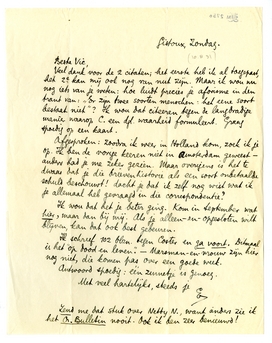 Gistoux, Zondag.
Beste Vic,
Veel dank voor de 2 citaten; het eerste heb ik al toegepast,
het 2e kan mij ook nog van nut zijn. Maar ik wou nu
nog iets van je weten: hoe luidt precies je aforisme in den
trant van: "Er zijn twee soorten menschen: het eene soort
bestaat niet"? Ik wou dat citeeren tegen de
manie waarop C. een dgl. waarheid formuleert. Graag
spoedig op een kaart.
Afgesproken: zoodra ik weer in Holland kom, zoek ik je
op. Ik ben de vorige keeren niet in Amsterdam geweest -
anders had je me zeker gezien. Maar overigens is het te
dwaas dat je die brievenhistorie als een soort onbetaalde
schuld beschouwt! dacht je dat ik zelf nog wist wat ik
je allemaal heb gevraagd in die correspondentie?
Ik wou dat het je beter ging. Kom in September wat
hier, maar dan bij mij. Als je alleen-en-opgesloten wilt
blijven, kan dat ook best gebeuren.
Ik schreef 102 blzn tegen Coster en ga voort. Ditmaal
is het "op dood en leven" - Marsman en mouw zijn hier
nog niet, die komen pas over een goede week.
Antwoord spoedig: één zinnetje is genoeg.
Met veel hartelijks, steeds je
E.
Zend me dat stuk over Netty N., want anders zie ik
het N. Bulletin nooit. Ook ik ben zeer benieuwd!